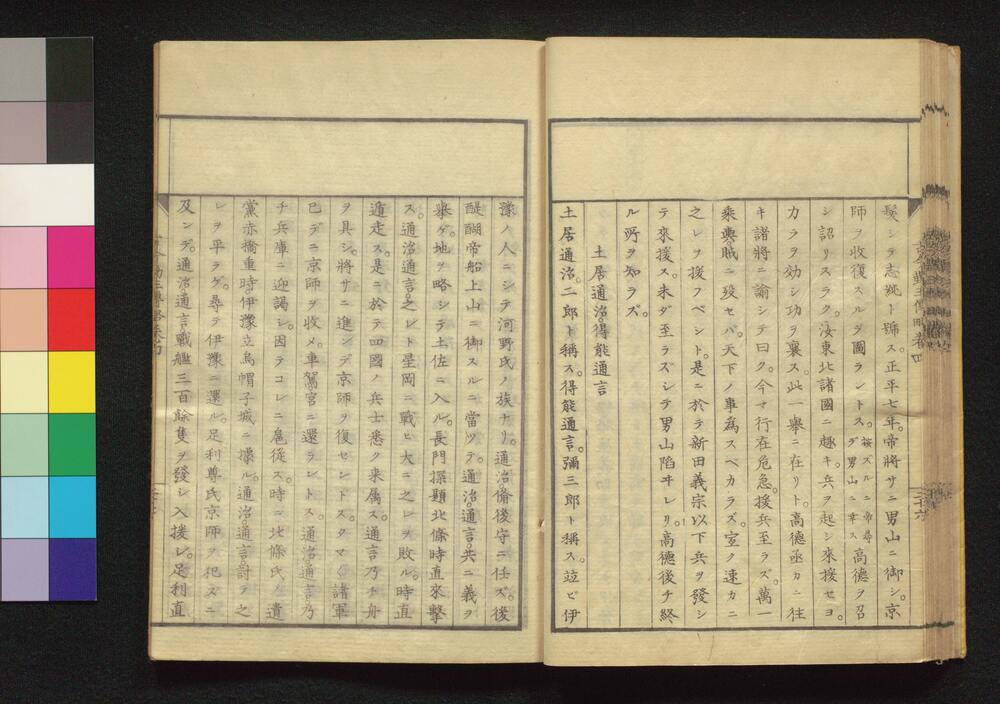 髮シテ志純ト號ス。正平七年。帝將サニ男山ニ御シ。京
師ヲ收復スルヲ圖ラントス。按ズルニ帝尋デ男山ニ幸ス高德ヲ召
シ詔リスラク。汝東北諸國ニ趣キ。兵ヲ起シ來援セヨ。
力ヲ効シ功ヲ襄ス。此一擧ニ在リト。高德亟カニ往
キ諸將ニ諭シテ曰ク。今マ行在危急。援兵至ラズ。萬一
乘輿賊ニ歿セバ。天下ノ事為スベカラズ。宜ク速カニ
之レヲ援フベシト。是ニ於テ新田義宗以下兵ヲ發シ
テ來援ス。未ダ至ラズシテ男山陷ヰレリ。高德後チ終
ル所ヲ知ラズ。
土居通治。得能通言
土居通治。二郎ト稱ス。得能通言。彌三郎ト稱ス。竝ビ伊
豫ノ人ニシテ河野氏ノ族ナリ。通治備後守ニ任ズ。後
醍醐帝船上山ニ御スルニ當ツテ。通治通言共ニ義ヲ
擧ゲ。地ヲ略シテ土佐ニ入ル。長門探題北條時直來擊
ス。通治通言之レト星岡ニ戰ヒ大ニ之レヲ敗ル。時直
遁走ス。是ニ於テ四國ノ兵士悉ク来属ス。通言乃チ舟
ヲ具シ。將サニ進ンデ京師ヲ復セントス。タマ〱諸軍
已デニ京師ヲ收メ。車駕宮ニ還ラントス。通治通言乃
チ兵庫ニ迎謁シ。因テコレニ扈從ス。時ニ北條氏ノ遺
黨赤橋重時伊豫立烏帽子城ニ據ル。通治通言討テ之
レヲ平ラグ。尋テ伊豫ニ還ル。足利尊氏京師ヲ犯スニ
及ンデ。通治通言戰艦三百餘隻ヲ發シ入援シ。足利直